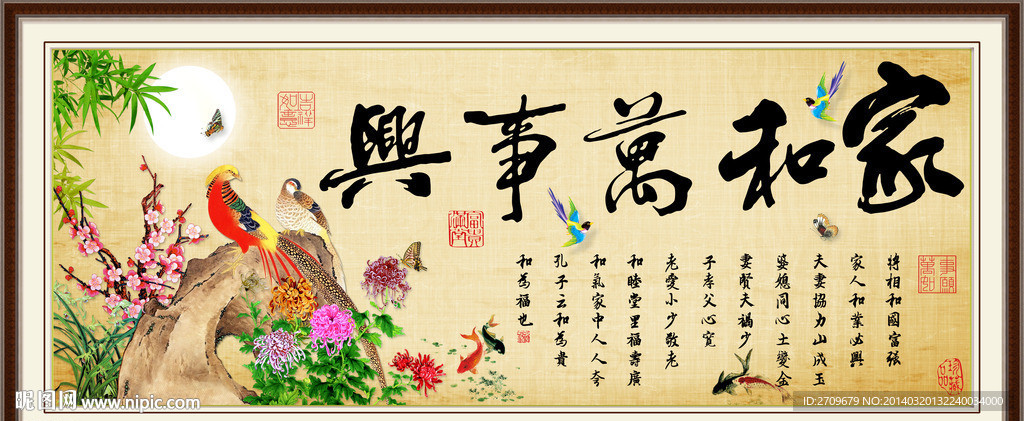 家和萬事興
將相和國富強
家人和業必興
夫妻協力山成玉
婆媳同心土變金
妻賢夫禍少
子孝父心寬
老愛小少敬老
和睦堂里福壽廣
和氣家中人人夸
孔子云和為貴
和為福也
吉祥如意
富貴滿堂
事願萬如
昵图网 www.nipic.com
ID:2709679 NO:20140320132240034000